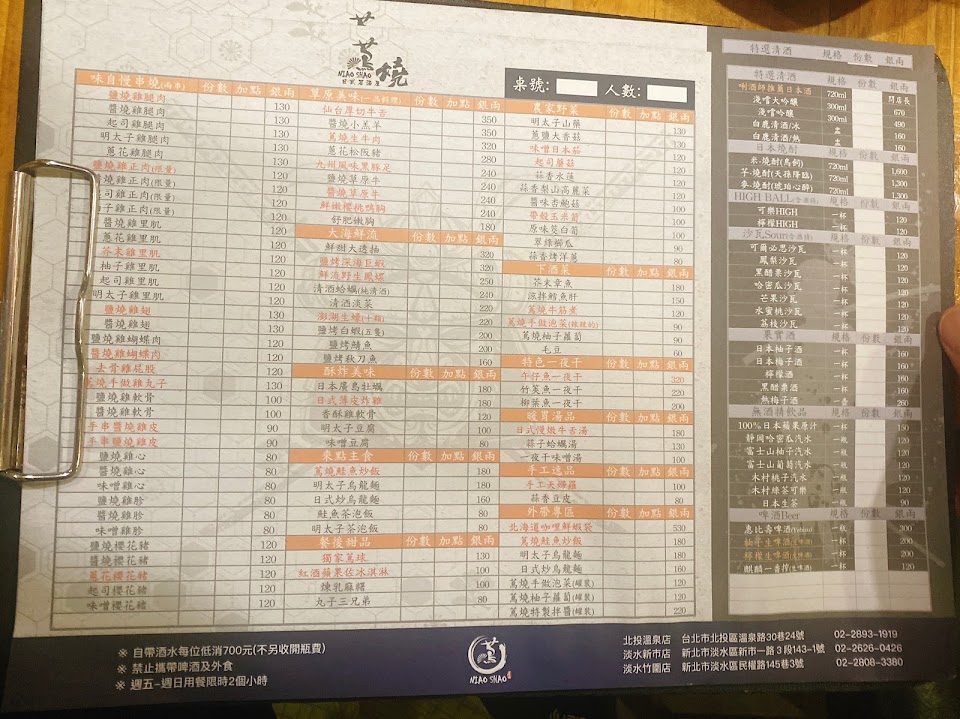 蔦燒
NIAO SHAO
日式居酒屋
桌號：
人數：
味自慢串燒(兩串) 份數 加點 銀兩
鹽燒雞腿肉 130
醬燒雞腿肉 130
起司雞腿肉
明太子雞腿肉
蔥花雞腿肉
鹽燒雞正肉(限量)
醬燒雞正肉(限量)
起司雞正肉(限量)
柚子雞正肉(限量)
醬燒雞里肌
蔥花雞里肌 120
芥末雞里肌 120
柚子雞里肌 120
起司雞里肌 120
明太子雞里肌 120
鹽燒雞翅 120
醬燒雞翅 120
鹽燒雞蝴蝶肉 120
醬燒雞蝴蝶肉 120
去骨雞屁股 120
蔦燒手做雞丸子 130
鹽燒雞軟骨 100
醬燒雞軟骨 100
手串醬燒雞皮 90
手串鹽燒雞皮 90
鹽燒雞心 80
醬燒雞心 80
味噌雞心 80
鹽燒雞胗 80
醬燒雞胗 80
味噌雞胗 80
鹽燒櫻花豬 120
醬燒櫻花豬 120
蔥花櫻花豬 120
起司櫻花豬 120
味噌櫻花豬 120
草原美味(一品料理) 份數 加點 銀兩
仙台厚切牛舌 350
醬燒小羔羊 350
蔦燒生牛肉 320
蔥花松阪豬 280
九州風味黑豚足 240
鹽燒草原牛 240
醬燒草原牛 240
鮮嫩櫻桃鴨胸 240
舒肥嫩胸
大海鮮流 份數 加點 銀兩
鮮甜大透抽 320
鹽烤深海巨蝦 320
鮮流野生鳳螺 250
清酒蛤蠣(純清酒) 240
清酒淡菜 220
澎湖生蠔(十顆) 220
鹽烤白蝦(五隻) 200
鹽烤鯖魚 200
鹽烤秋刀魚 160
酥炸美味 份數 加點 銀兩
日本廣島牡蠣 180
日式薄皮炸雞 180
香酥雞軟骨 120
明太子豆腐 100
味噌豆腐 80
來點主食 份數 加點 銀兩
蔦燒鮭魚炒飯 180
明太子烏龍麵 180
日式炒烏龍麵 160
鮭魚茶泡飯 80
明太子茶泡飯 80
餐後甜品 份數 加點 銀兩
獨家蔦球 130
紅酒蘋果佐冰淇淋 100
煉乳麻糬 100
丸子三兄弟 80
農家野菜 份數 加點 銀兩
明太子山藥 130
蔥鹽大香菇 130
味噌日本茄 130
起司蘑菇 130
蒜香水蓮 120
蒜香梨山高麗菜 120
醬味杏鮑菇 100
帶殼玉米筍 100
原味筊白筍 100
翠綠櫛瓜 80
蒜香烤洋蔥 80
下酒菜 份數 加點 銀兩
芥末章魚 180
涼拌鱈魚肝 150
蔦燒牛筋煮 120
蔦燒手做泡菜(辣辣的) 90
蔦燒柚子蘿蔔 90
毛豆 60
特色一夜干 份數 加點 銀兩
午仔魚一夜干 320
竹筴魚一夜干 220
柳葉魚一夜干 200
暖胃湯品 份數 加點 銀兩
日式慢燉牛舌湯 180
蒜子蛤蠣湯 130
一夜干味噌湯 100
手工逸品 份數 加點 銀兩
手工天婦羅 100
蒜香豆皮 80
外帶專區 份數 加點 銀兩
北海道咖哩鮮蝦袋 530
蔦燒鮭魚炒飯 180
明太子烏龍麵 180
日式炒烏龍麵 160
蔦燒手做泡菜(罐裝) 120
蔦燒柚子蘿蔔(罐裝) 120
蔦燒特製拌醬(罐裝) 220
特選清酒 規格 份數 銀兩
特選清酒 規格 份數 銀兩
唎酒師推薦日本酒 720ml 問店長
淺嚐大吟釀 720ml 670
淺嚐大吟釀 300ml 490
白鹿清酒/冰 160
白鹿清酒/熱 160
日本燒酎 規格 份數 銀兩
米-燒酎(鳥飼) 720ml 1,600
芋-燒酎(天孫降臨) 720ml 1,300
麥-燒酎(琥珀心醉) 720ml 1,300
HIGH BALL(含酒精) 規格 份數 銀兩
可樂HIGH 一杯 120
檸檬HIGH 一杯 120
沙瓦Sour(含酒精) 規格 份數 銀兩
可爾必思沙瓦 一杯 120
鳳梨沙瓦 一杯 120
黑醋栗沙瓦 一杯 120
哈密瓜沙瓦 一杯 120
芒果沙瓦 一杯 120
水蜜桃沙瓦 一杯 120
荔枝沙瓦 一杯 120
果實酒 規格 份數 銀兩
日本柚子酒 一杯 160
日本梅子酒 一杯 160
檸檬酒 一杯 160
黑醋栗酒 一杯 160
熱梅子酒 一壺 260
無酒精飲品 規格 份數 銀兩
100%日本蘋果原汁 一杯 150
靜岡哈密瓜汽水 一瓶 120
富士山柚子汽水 一瓶 120
富士山葡萄汽水 一瓶 120
木村桃子汽水 一瓶 120
木村綠茶可樂 一瓶 120
日本生茶 一瓶 90
啤酒Beer 規格 份數 銀兩
惠比壽啤酒 一杯 300
柚子生啤酒 一杯 200
檸檬生啤酒 一杯 200
麒麟一番搾(生啤酒) 一杯 120
※ 自帶酒水每位低消700元(不另收開瓶費)
※ 禁止攜帶啤酒及外食
※ 週五-週日用餐限時2個小時
蔦
NIAO SHAO
北投溫泉店 台北市北投區溫泉路30巷24號 02-2893-1919
淡水新市店 新北市淡水區新市一路３段143-1號 02-2626-0426
淡水竹圍店 新北市淡水區民權路145巷3號 02-2808-3380